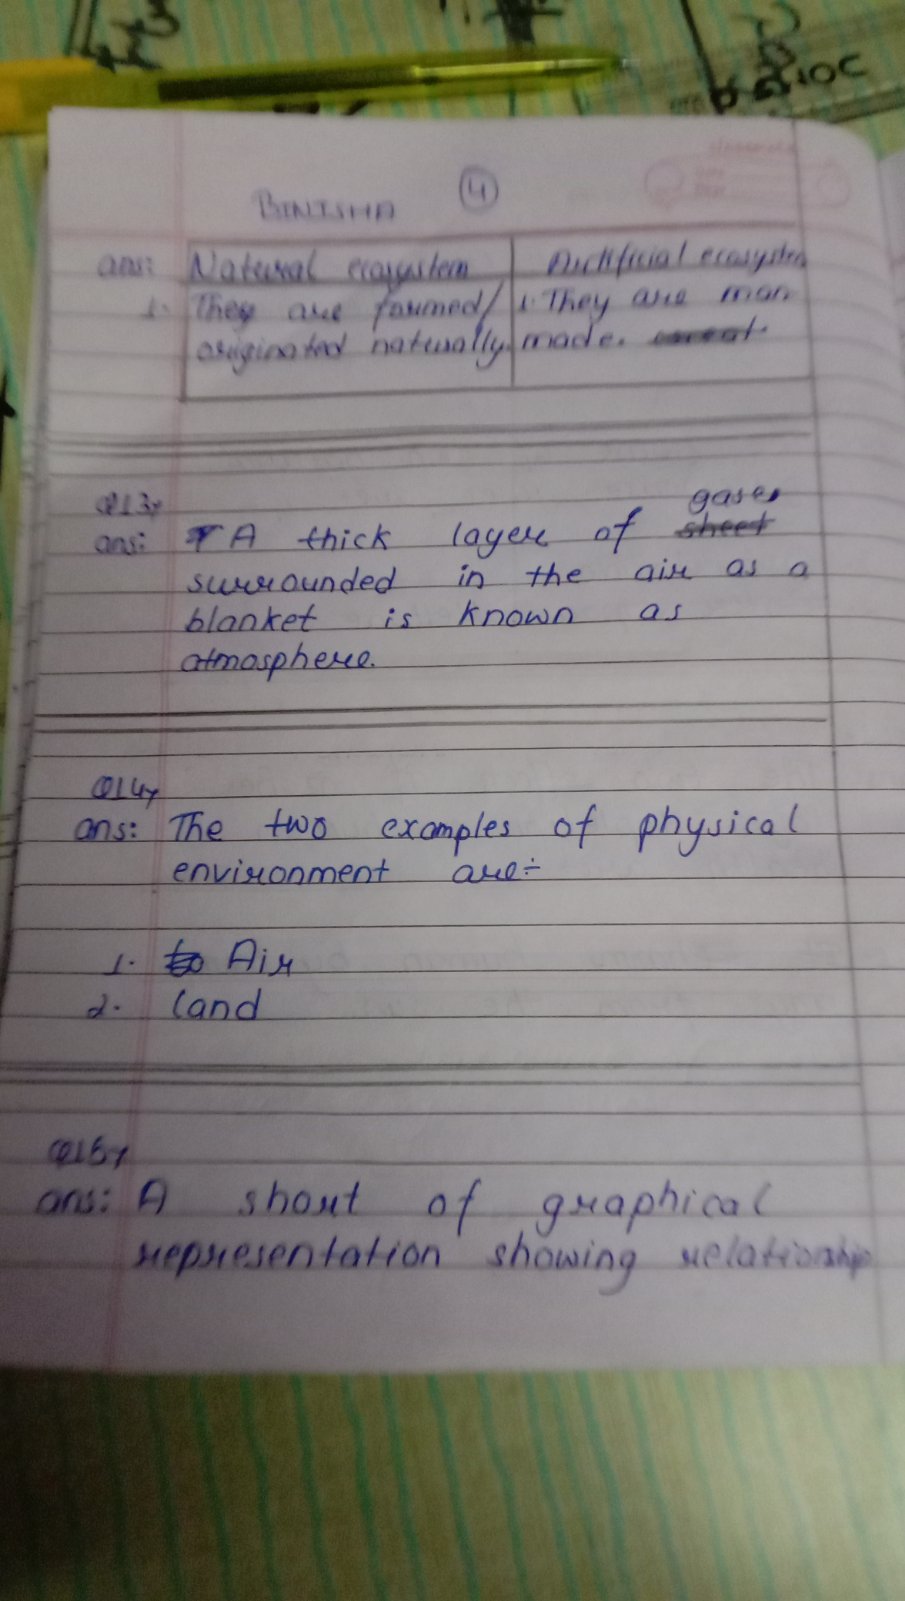 BINISHA 4
ans: Natural ecosystem | Artificial ecosystem
1. They are formed/ | 1. They are man
originated naturally. | made.
Q13y
gases
ans: A thick layer of sheet
surrounded in the air as a
blanket is known as
atmosphere.
Q14y
ans: The two examples of physical
environment are÷
1. to Air
2. Land
Q15y
ans: A short of graphical
representation showing relationship